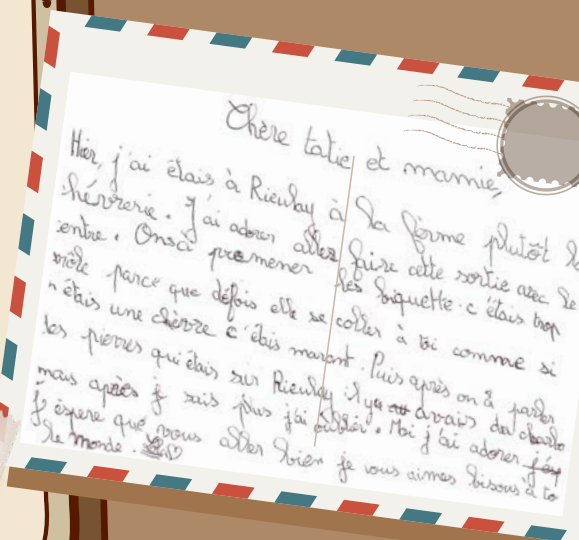 Chère tatie et mamie,
Hier, j'ai étais à Rieulay à la ferme plutôt
chévrerie. J'ai adorer aller faire cette sortie avec le
centre. Onsà promener les biquette. c'étais trop
parce que défois elle se colles à toi comme si
n'étais une chèvre c'étais marant. Puis après on à parler
les pierres qui étais sur Rieulay il ya avais du
mais après je sais plus j'ai oublier. Moi j'ai adorer
J'éspere que vous aller bien je vous aimes bisous à to
le monde.